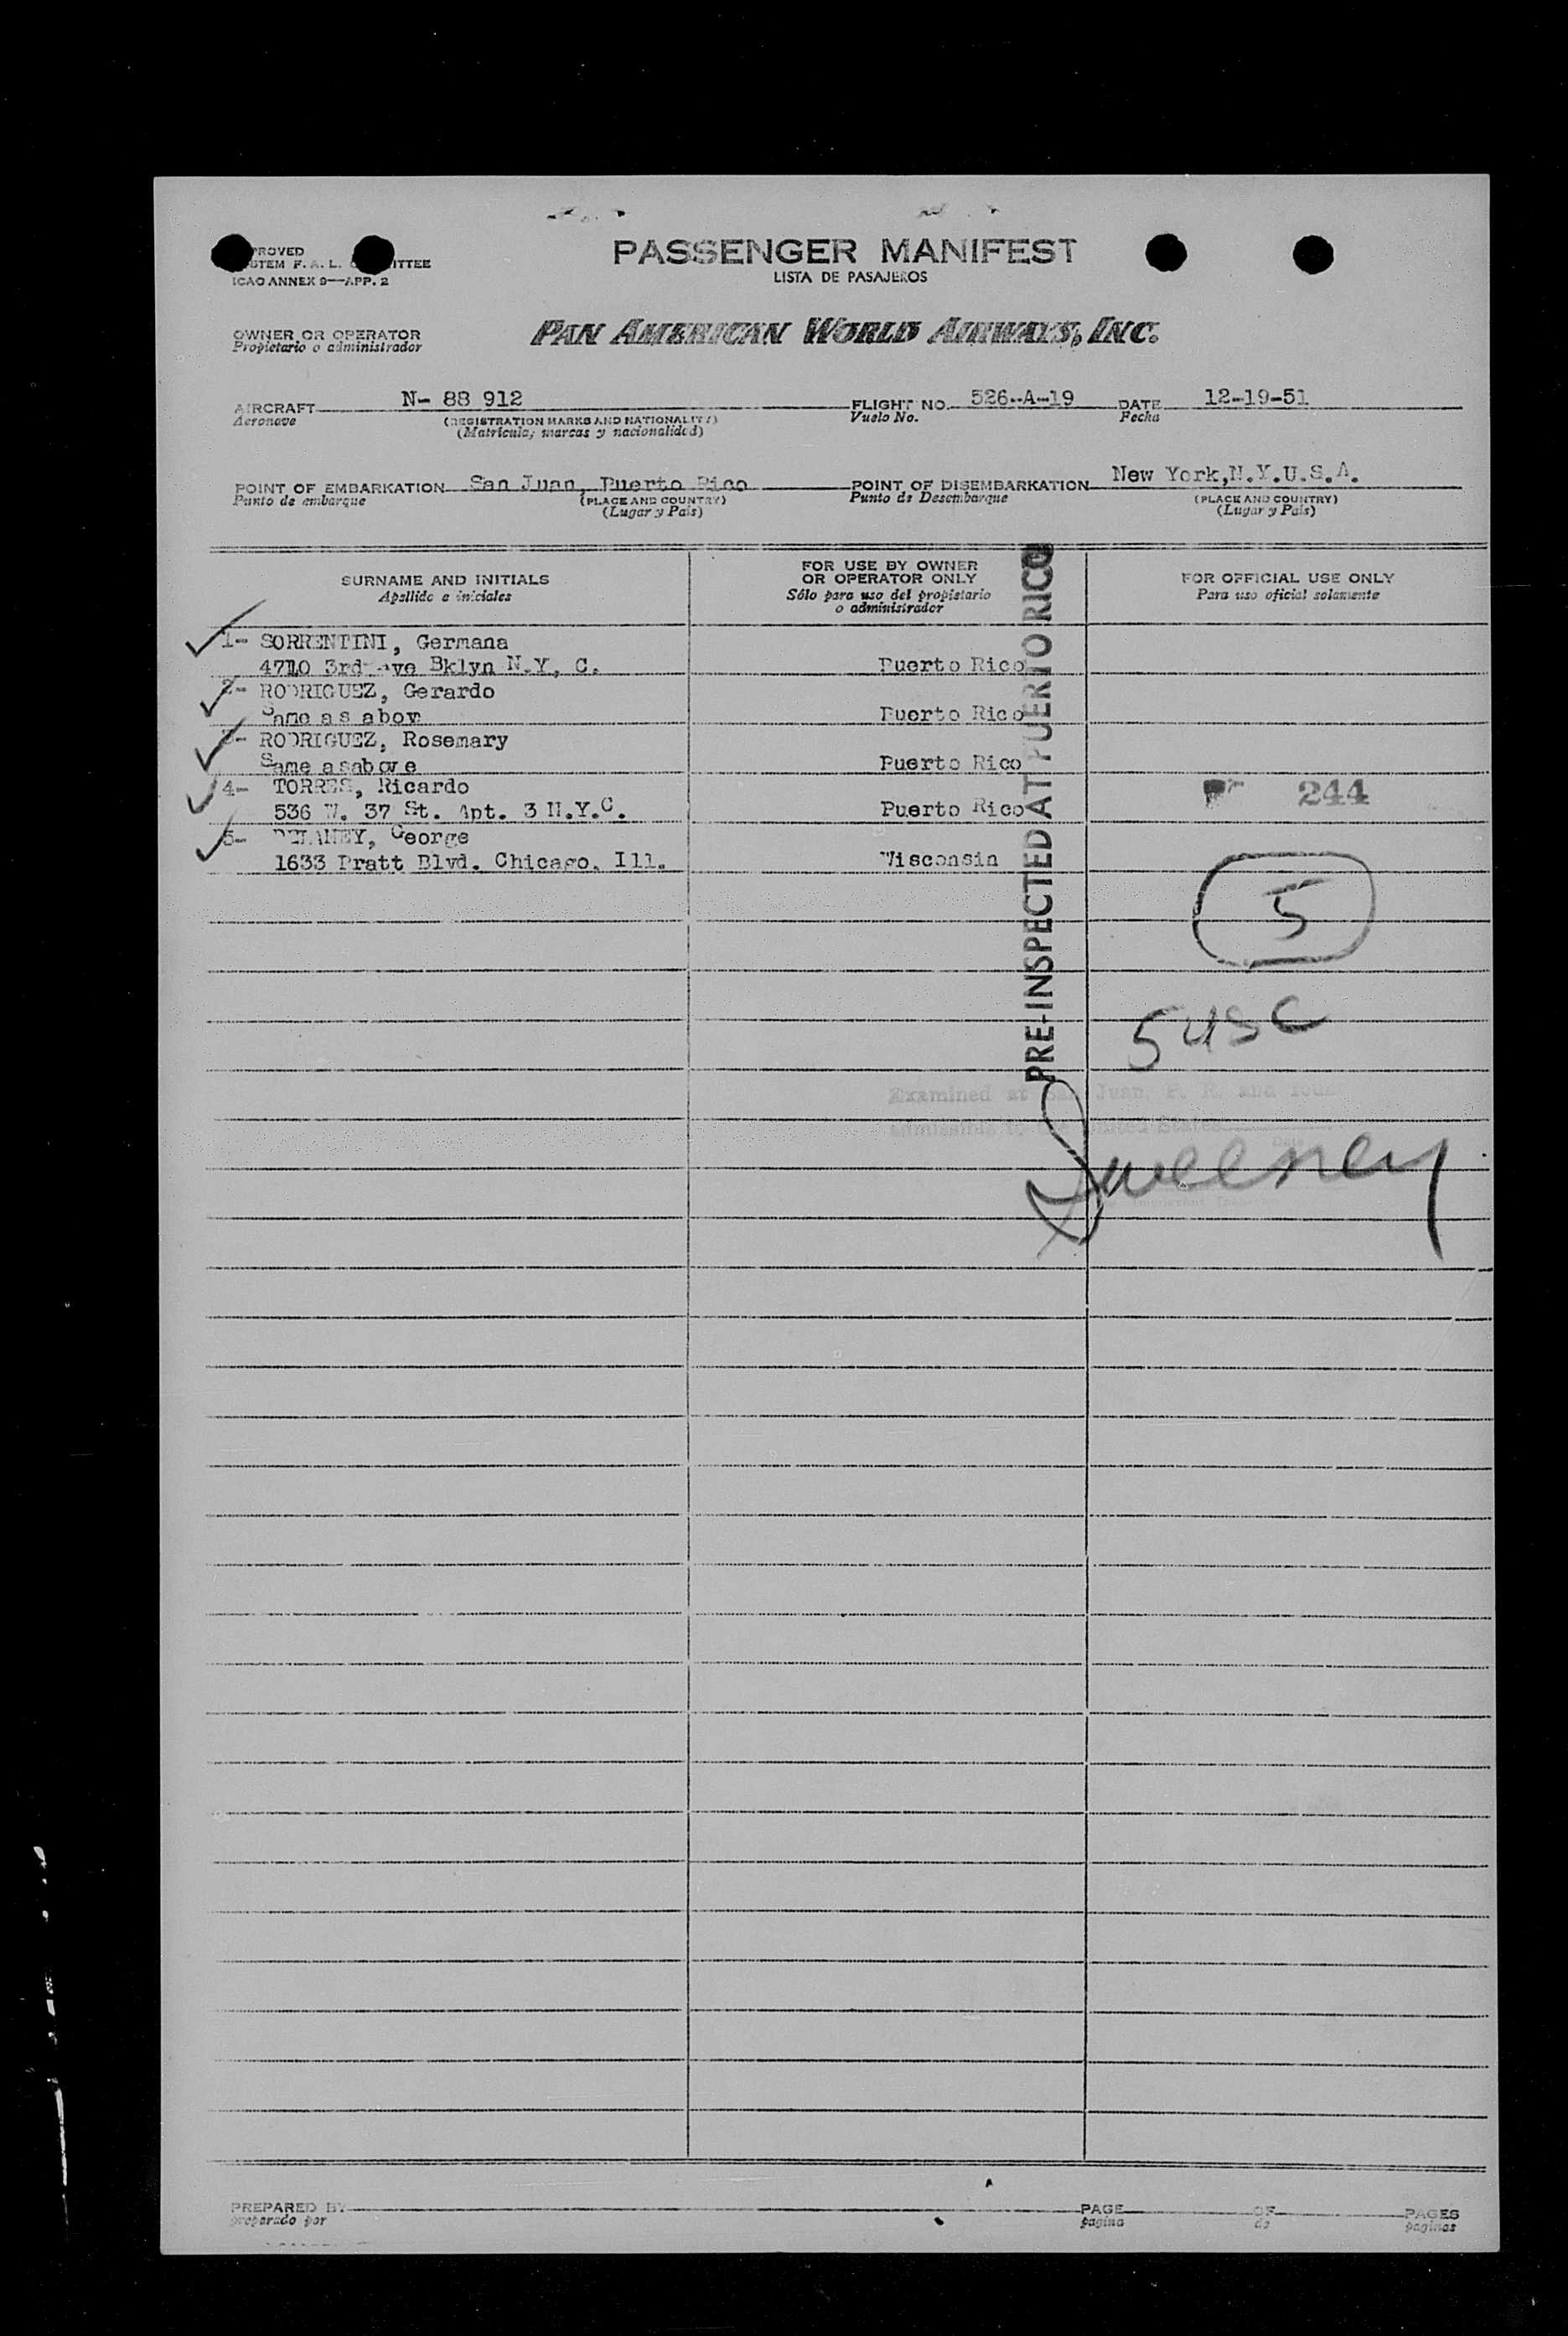 PASSENGER MANIFEST
LISTA DE PASAJEROS
ICAO ANNEX 9—APP. 2
OWNER OR OPERATOR
Propietario o administrador
PAN AMERICAN WORLD AIRWAYS, INC.
AIRCRAFT N- 88 912 FLIGHT NO. 526-A-19 DATE 12-19-51
Aeronave (REGISTRATION MARKS AND NATIONALITY) Vuelo No. Fecha
(Matricula, marcas y nacionalidad)
POINT OF EMBARKATION San Juan, Puerto Rico POINT OF DISEMBARKATION New York,N.Y.U.S.A.
Punto de embarque (PLACE AND COUNTRY) Punto de Desembarque (PLACE AND COUNTRY)
(Lugar y Pais) (Lugar y Pais)
SURNAME AND INITIALS
Apellido e iniciales
FOR USE BY OWNER
OR OPERATOR ONLY
Sólo para uso del propietario
o administrador
FOR OFFICIAL USE ONLY
Para uso oficial solamente
1- SORRENTINI, Germana
4710 3rd ave Bklyn N.Y, C. Puerto Rico
2- RODRIGUEZ, Gerardo
Same as abov Puerto Rico
3- RODRIGUEZ, Rosemary
Same asabove Puerto Rico
4- TORRES, Ricardo
536 W. 37 St. Apt. 3 N.Y.C. Puerto Rico
244
5- DELANEY, George
1633 Pratt Blvd. Chicago, Ill. Wisconsin
PRE-INSPECTED AT PUERTO RICO
5
5 usc
Examined at San Juan, P. R. and found
admissible to the United States
Date
Sweeney
PREPARED BY PAGE OF PAGES
preparado por pagina de paginas